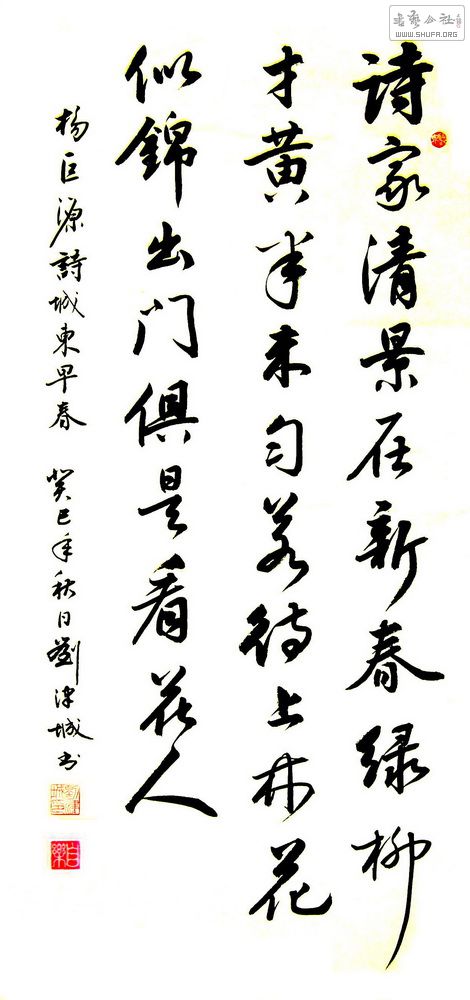 书艺公社
WWW.SHUFA.ORG
诗家清景在新春绿柳
才黄半未匀若待上林花
似錦出门俱是看花人
杨巨源詩城東早春 癸巳年秋日劉津城书